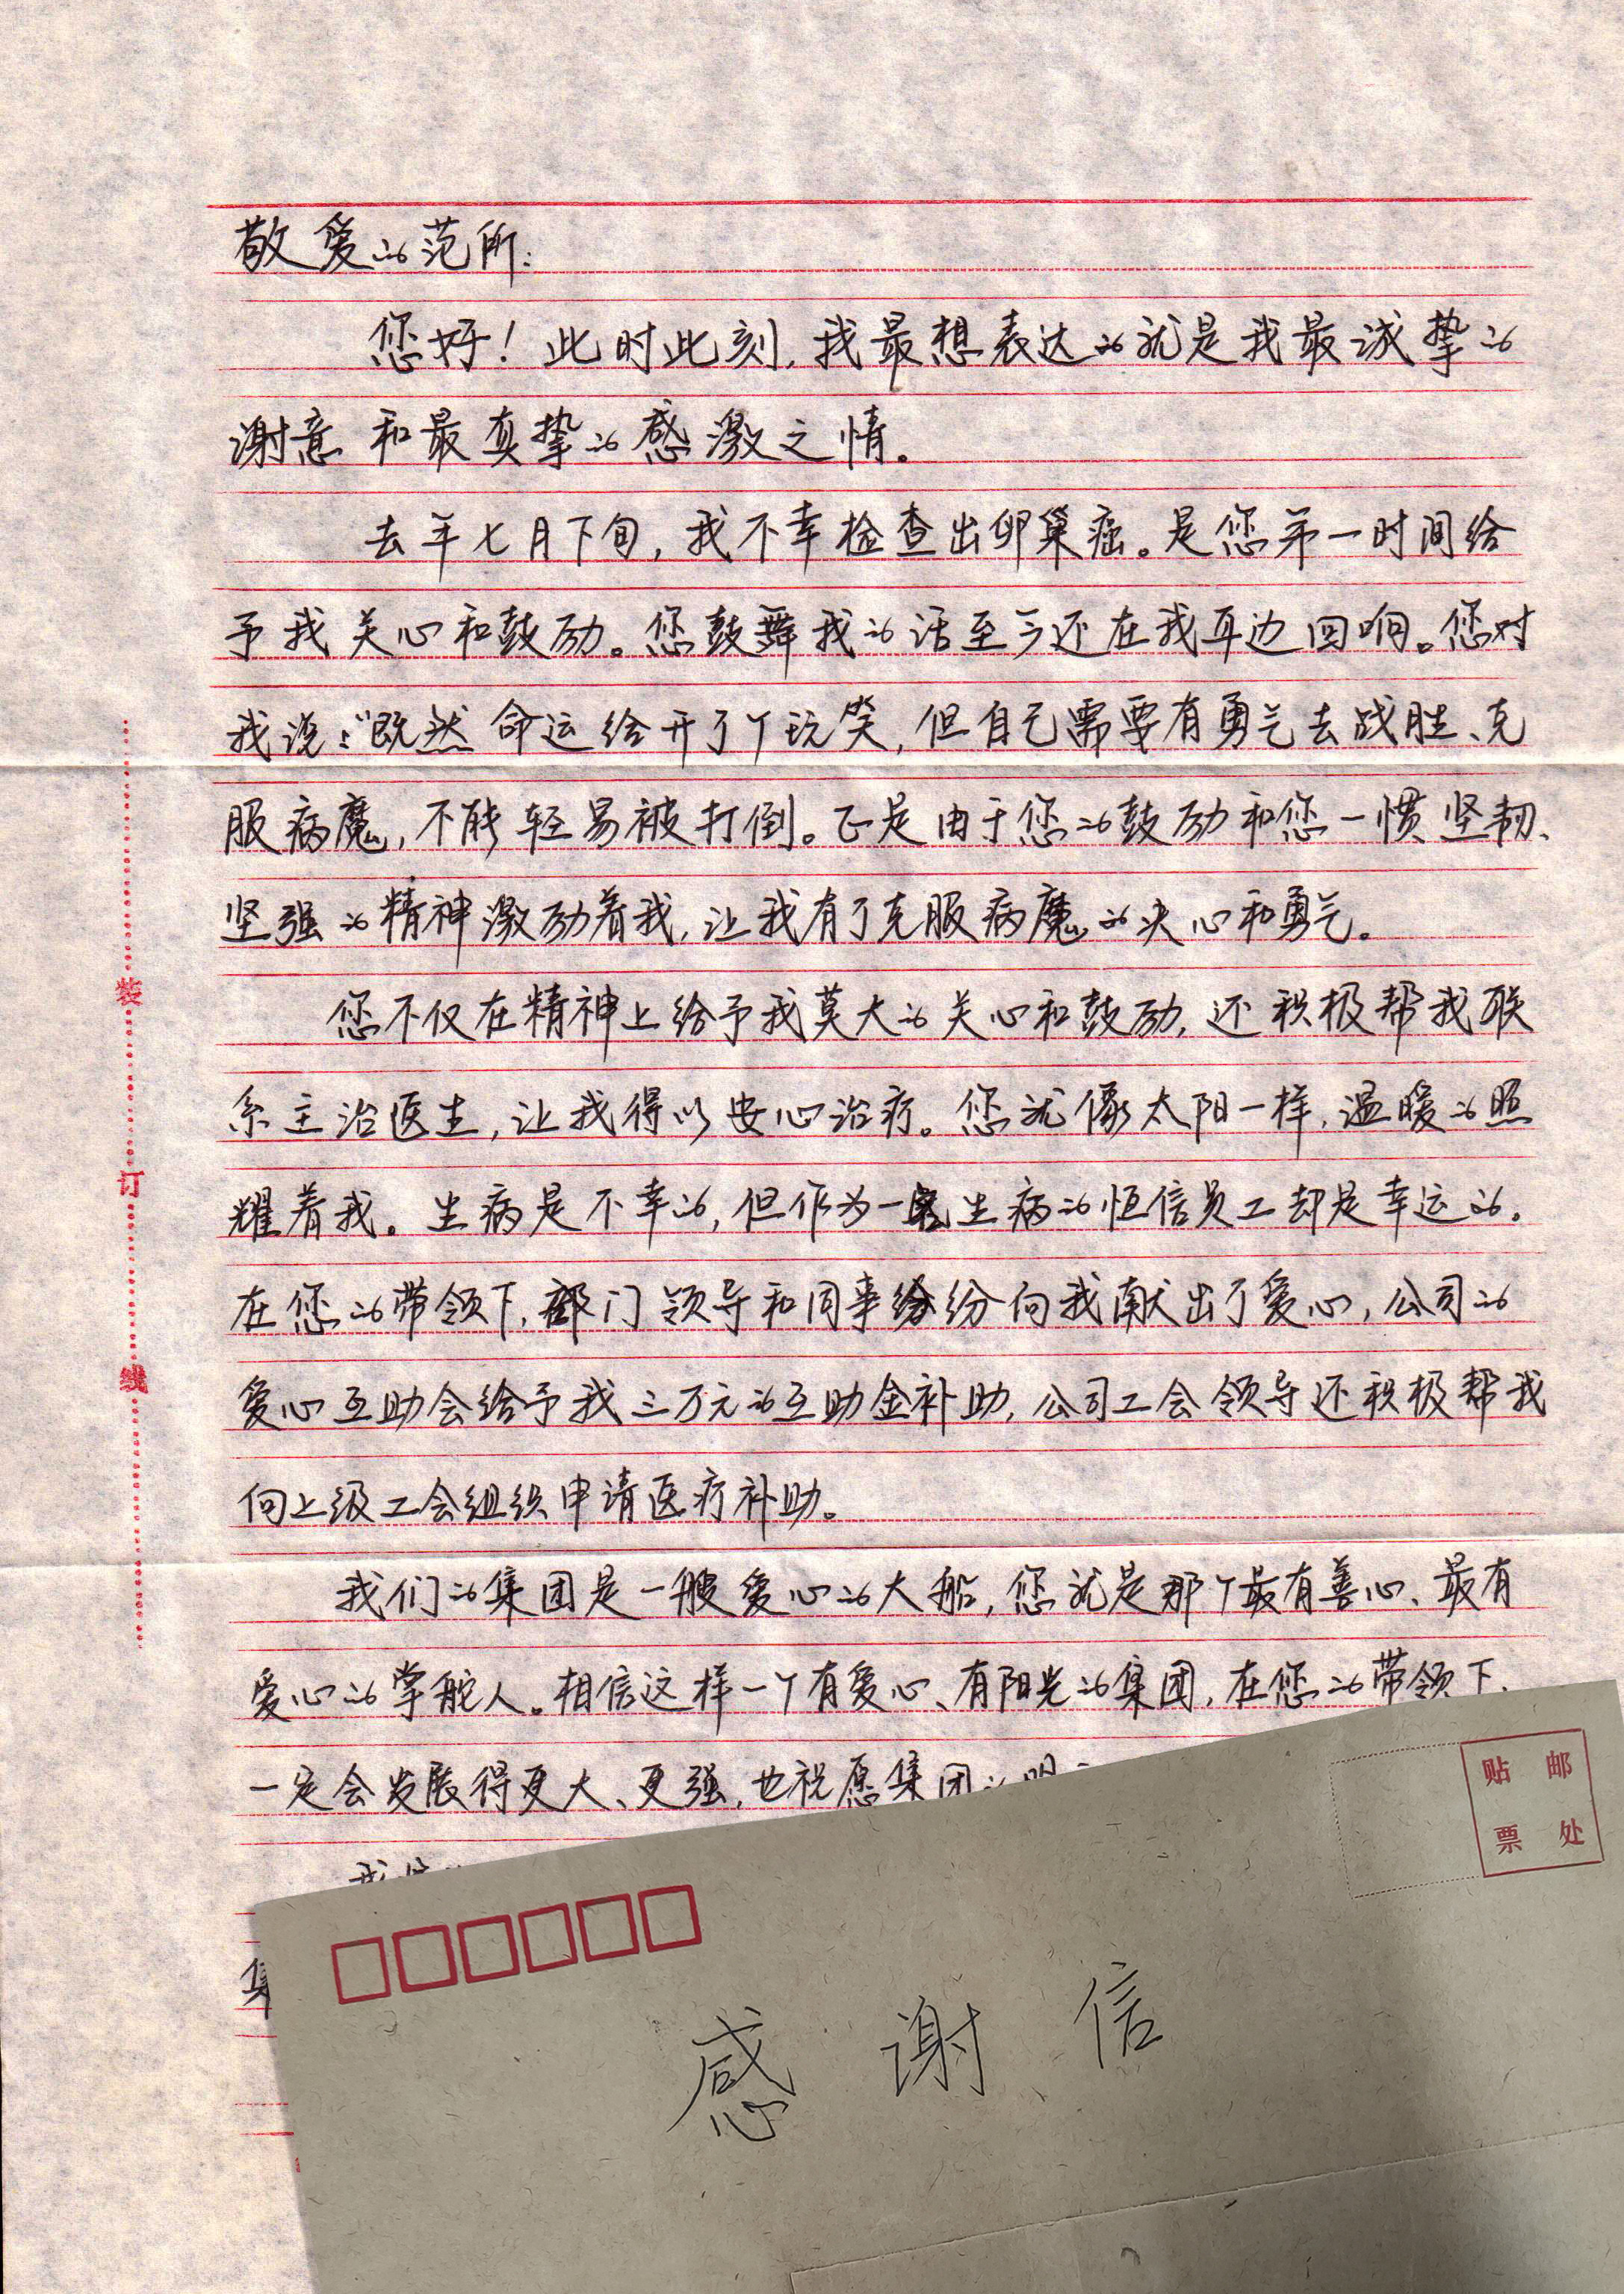 敬爱的范所:
您好！此时此刻,我最想表达的就是我最诚挚的
谢意和最真挚的感激之情。
去年七月下旬,我不幸检查出卵巢癌。是您第一时间给
予我关心和鼓励。您鼓舞我的话至今还在我耳边回响。您对
我说:“既然命运给开了个玩笑,但自己需要有勇气去战胜、克
服病魔,不能轻易被打倒。正是由于您的鼓励和您一惯坚韧、
坚强的精神激励着我,让我有了克服病魔的决心和勇气。
您不仅在精神上给予我莫大的关心和鼓励,还积极帮我联
系主治医生,让我得以安心治疗。您就像太阳一样,温暖的照
耀着我。生病是不幸的,但作为一名生病的恒信员工却是幸运的。
在您的带领下,部门领导和同事纷纷向我献出了爱心,公司的
爱心互助会给予我三万元的互助金补助,公司工会领导还积极帮我
向上级工会组织申请医疗补助。
我们的集团是一艘爱心的大船,您就是那个最有善心、最有
爱心的掌舵人。相信这样一个有爱心、有阳光的集团,在您的带领下、
一定会发展得更大、更强,也祝愿集团的明
装
订
线
贴邮
票处
感谢信